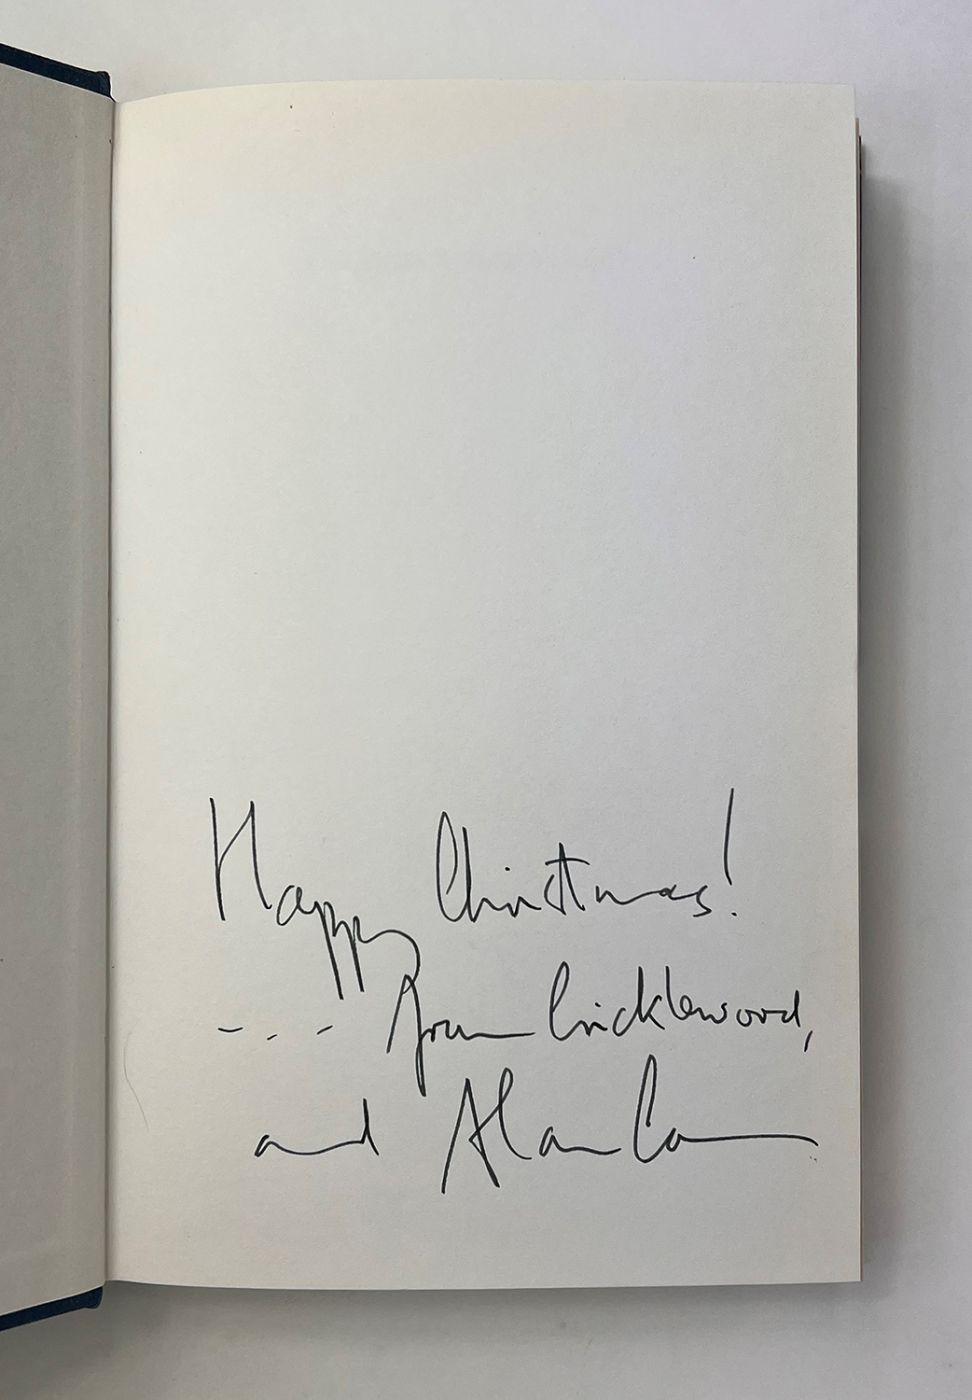 Happy Christmas!
- . - from Cricklewood,
and Alan